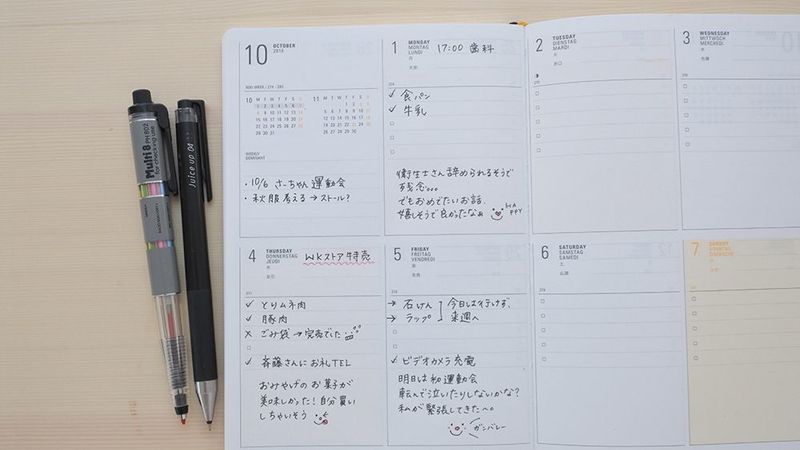 10 OCTOBER
2018
M T W T F S S
1 2 3 4 5 6 7
8 9 10 11 12 13 14
15 16 17 18 19 20 21
22 23 24 25 26 27 28
29 30 31
11 M T W T F S S
WEEKLY
DOMINANT
・10/6 さーちゃん 運動会
・秋服考える→ストール?
1 MONDAY
MONTAG
LUNDI
月
17:00 歯科
✓ 食パン
✓ 牛乳
衛生士さん辞められるそうで
残念。。。
でもおめでたいお話、
嬉しそうで良かったなぁ
HAPPY
2 TUESDAY
DIENSTAG
MARDI
火
3 WEDNESDAY
MITTWOCH
MERCREDI
水
4 THURSDAY
DONNERSTAG
JEUDI
木
WKストア特売
✓ とりムネ肉
✓ 豚肉
× ごみ袋→完売でした
✓ 斉藤さんにお礼TEL
おみやげのお菓子が
美味しかった!自分買い
しちゃいそう
5 FRIDAY
FREITAG
VENDREDI
金
→ 石けん
→ ラップ
今日は行けず、
来週へ
✓ ビデオカメラ充電
明日は初運動会
転んで泣いたりしないかな?
私が緊張してきたへ。
ガンバレー
6 SATURDAY
SAMSTAG
SAMEDI
土
7 SUNDAY
SONNTAG
DIMANCHE
日
Multi 8 PH-802
for checking use
Juice up 04